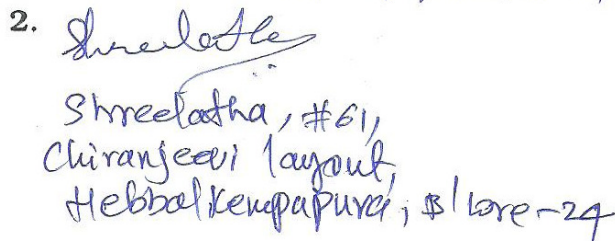 2. Shreelatha
Shreelatha, #61,
Chiranjeevi layout,
Hebbal Kempapura, B'lore-24